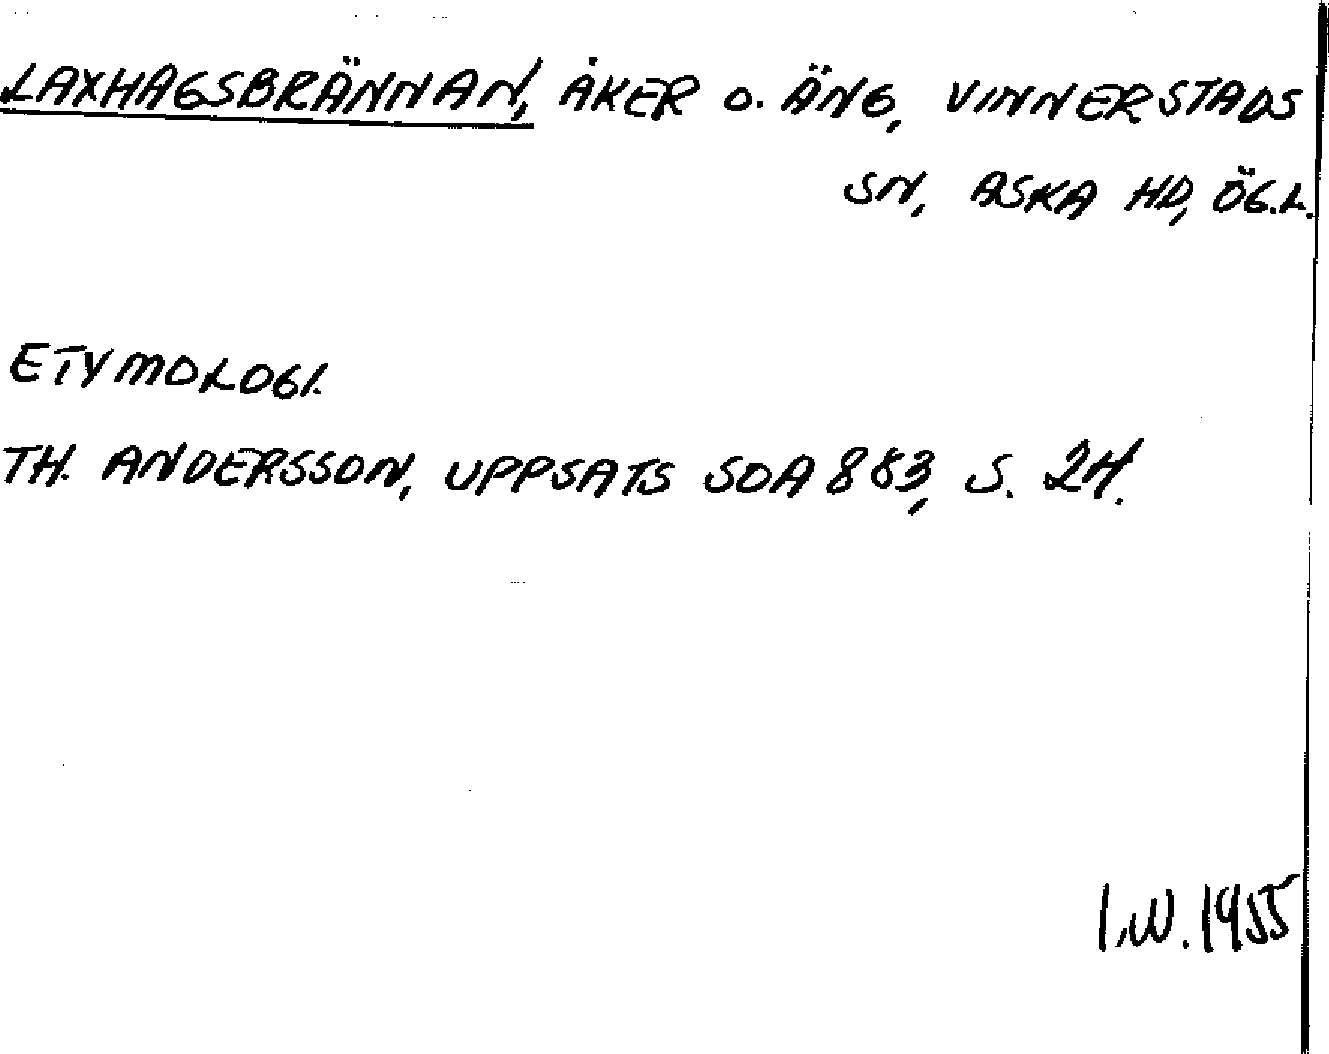 LAXHAGSBRÄNNAN, ÅKER O. ÄNG, VINNERSTADS
SN, ASKA HD, ÖG.L.
ETYMOLOGI.
TH. ANDERSSON, UPPSATS SOA 883, S. 24.
I.W. 1955